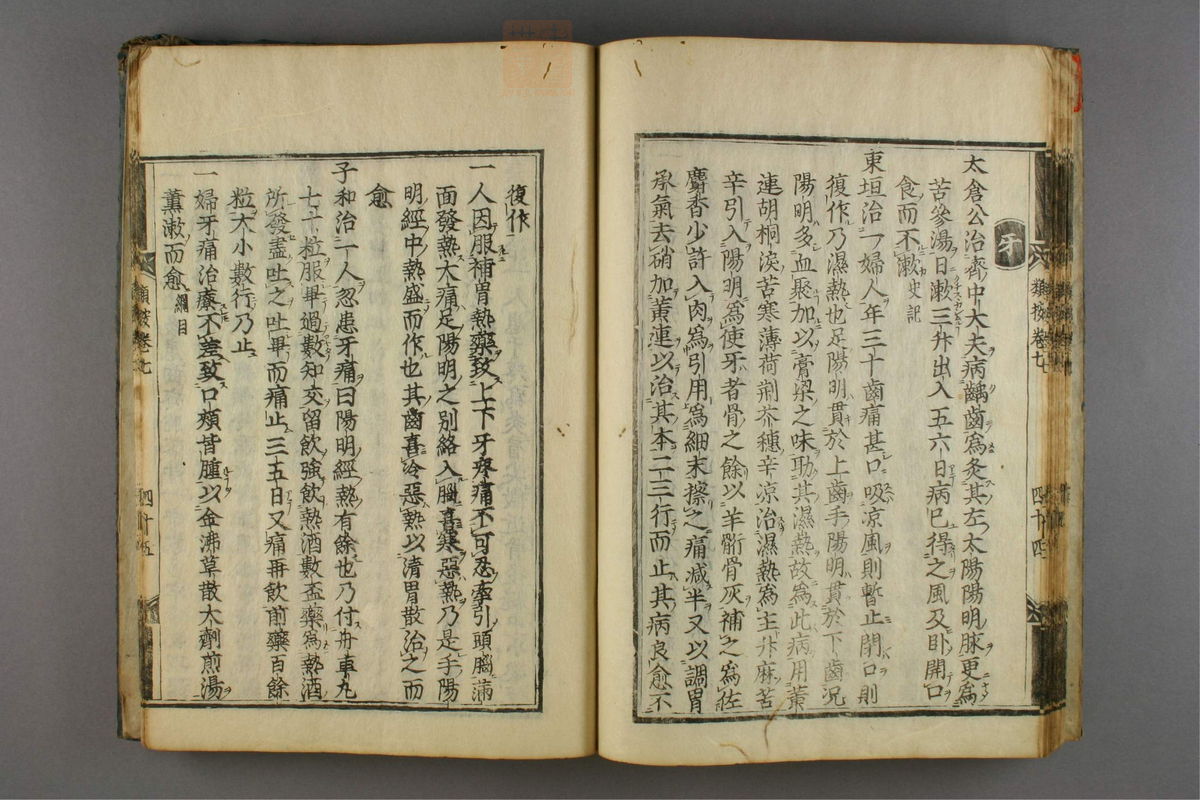 牙
太倉公治齊中大夫病齲齒爲灸其左太陽陽明脉更爲
苦參湯日漱三升出入五六日病已得之風及臥開口
食而不漱史記
東垣治一婦人年三十齒痛甚口吸凉風則暫止閉口則
復作乃濕熱也足陽明貫於上齒手陽明貫於下齒況
陽明多血聚加以膏粱之味助其濕熱故爲此病用黄
連胡桐淚苦寒薄荷荆芥穗辛凉治濕熱爲主升麻苦
辛引入陽明爲使牙者骨之餘以羊骱骨灰補之爲佐
麝香少許入肉爲引用爲細末擦之痛减半又以調胃
承氣去硝加黄連以治其本二三行而止其病良愈不
類按卷七
四十四
復作
一人因服補胃熱藥致上下牙疼痛不可忍牽引頭腦滿
面發熱大痛足陽明之别絡入腦喜寒惡熱乃是手陽
明經中熱盛而作也其齒喜冷惡熱以清胃散治之而
愈
子和治一人忽患牙痛曰陽明經熱有餘也乃付舟車丸
七十粒服畢過數知交留飲強飲熱酒數盃藥爲熱酒
所發盡吐之吐畢而痛止三五日又痛再飲前藥百餘
粒大小數行乃止
一婦牙痛治療不差致口頰皆腫以金沸草散大劑煎湯
薫漱而愈綱目
類按卷七
四十五